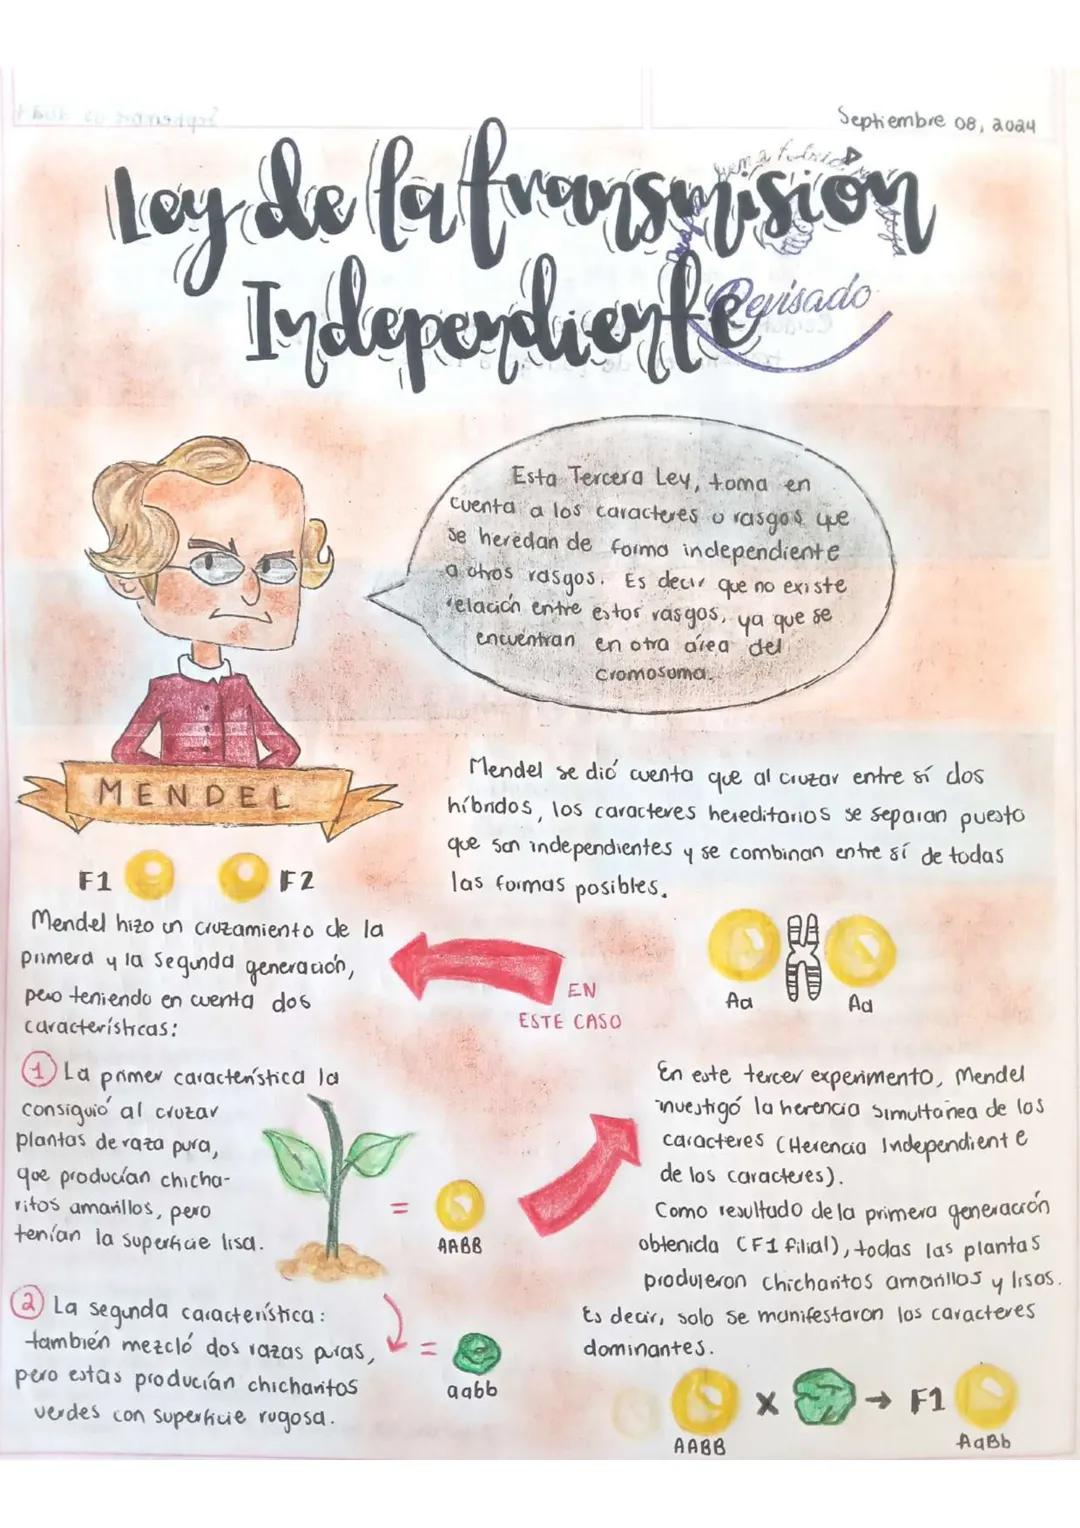 Septiembre 08, 2024
Ley de la transmisión
Independiente
Revisado
Esta Tercera Ley, toma en
cuenta a los caracteres o rasgos que
se heredan de forma independiente
a otros rasgos. Es decir que no existe
relación entre estor rasgos, ya que se
encuentran en otra área del
cromosoma.
MENDEL
Mendel se dió cuenta que al cruzar entre sí dos
híbridos, los caracteres hereditarios se separan puesto
que son independientes y se combinan entre sí de todas
las formas posibles.
F1 F2
Mendel hizo un cruzamiento de la
primera y la segunda generación,
pero teniendo en cuenta dos
características:
EN
ESTE CASO
Aa Aa
1 La primer característica la
consiguió al cruzar
plantas de raza pura,
que producían chicha-
ritos amarillos, pero
tenían la superficie lisa.
= AABB
2 La segunda característica:
también mezcló dos razas puras,
pero estas producían chicharitos
verdes con superficie rugosa.
= aabb
En este tercer experimento, Mendel
investigó la herencia simultánea de los
caracteres (Herencia Independiente
de los caracteres).
Como resultado de la primera generación
obtenida (F1 filial), todas las plantas
produjeron chicharitos amarillos y lisos.
Es decir, solo se manifestaron los caracteres
dominantes.
x → F1
AABB AaBb